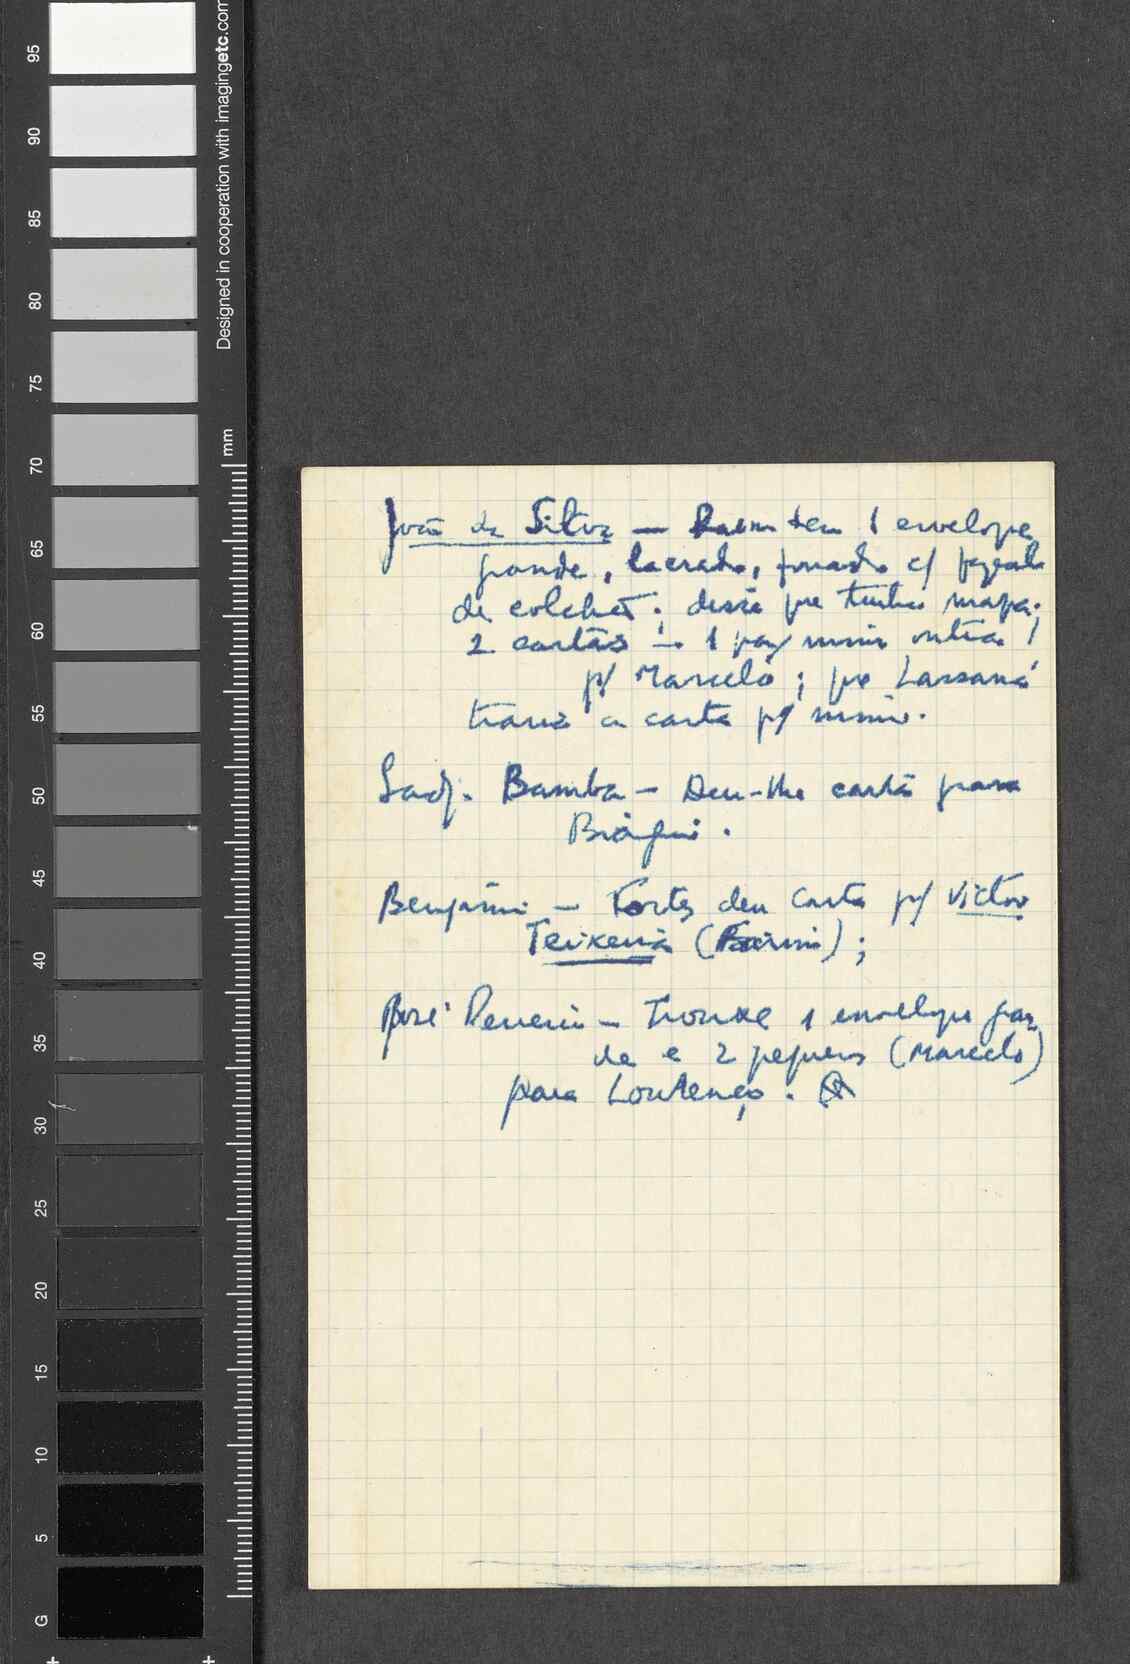 95
90
85
80
75
70
65
60
55
50
45
40
35
30
25
20
15
10
5
G
Designed in cooperation with imagingetc.com
mm
João da Silva — deu 1 envelope
grande, lacrado, c/
de colchet; disse que tinha mapa;
2 cartas — 1 para mim outra
p/ Marcelo; que Lassana
trazia a carta p/ mim.
Sadj. Bamba — Deu-lhe carta para
Biágui.
Benjamim — Fortes deu carta p/ Victor
Teixeira ( );
José — Trouxe 1 envelope gran
de e 2 pequenos (Marcelo)
para Lourenço.